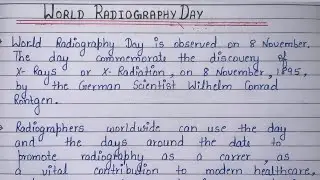 WORLD RADIOGRAPHY DAY
→ World Radiography Day is observed on 8 November.
The day commemorates the discovery of
X-Rays or X-Radiation, on 8 November, 1895,
by the German Scientist Wilhelm Conrad
Rontgen.
→ Radiographers worldwide can use the day
and the days around the date to
promote radiography as a carrer, as
a vital contribution to modern healthcare,